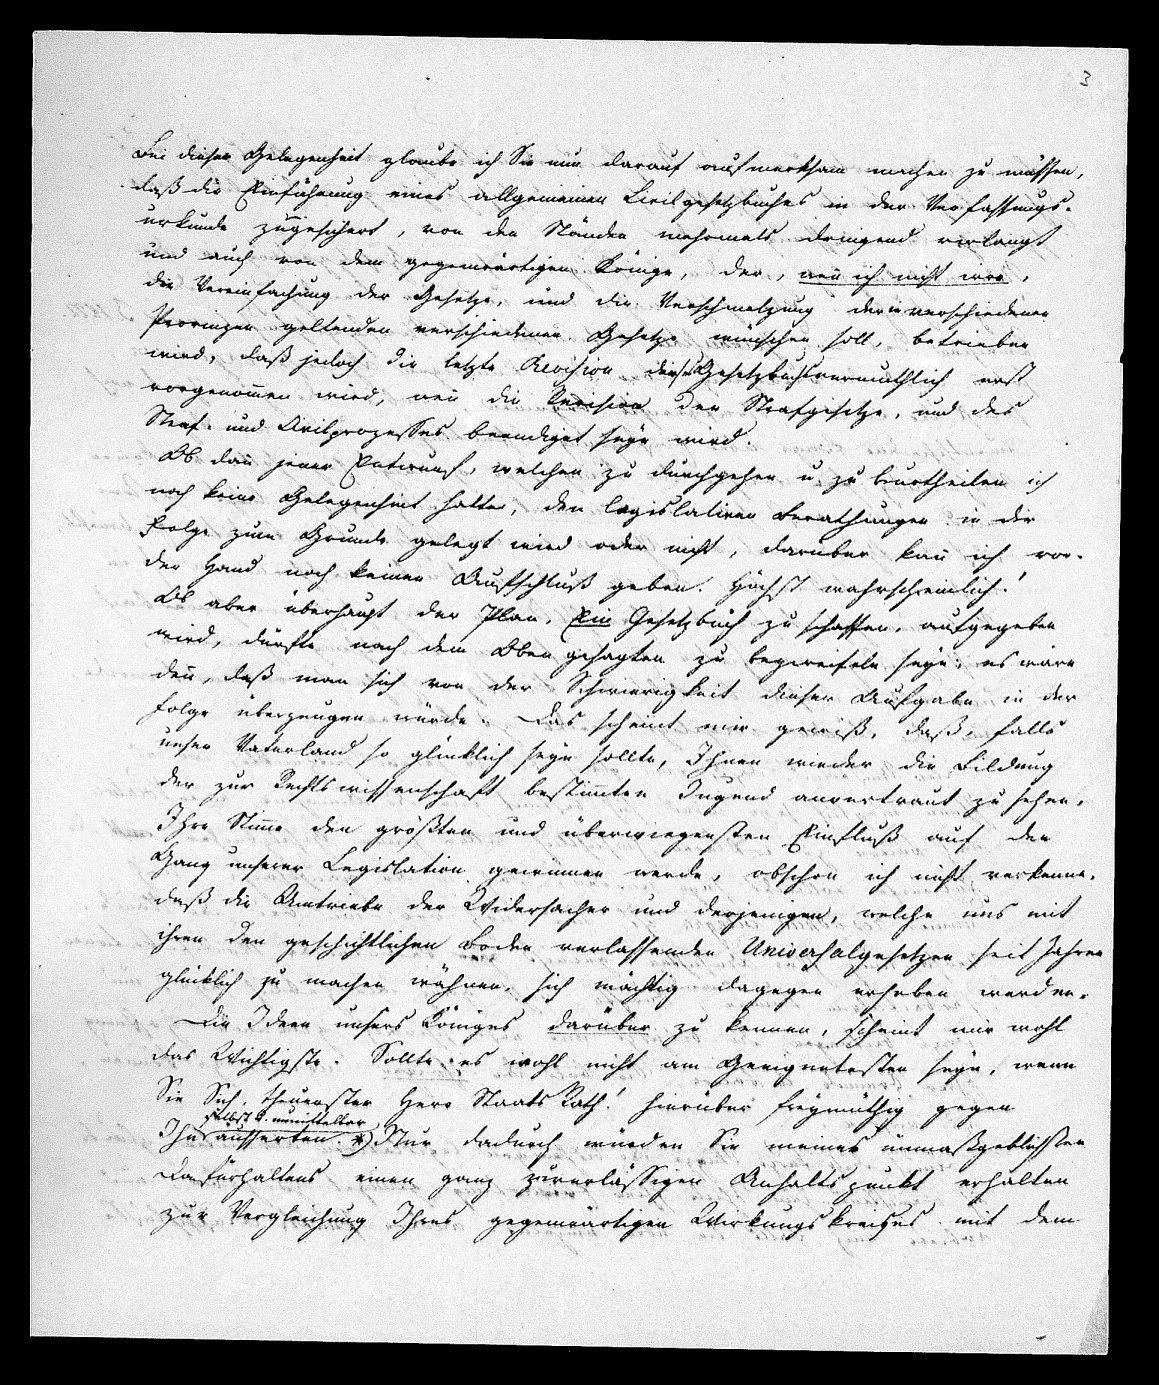 3
Bei dieser Gelegenheit glaube ich Sie nur darauf aufmerksam machen zu müssen,
daß die Einführung eines allgemeinen Civilgesetzbuches in der Verfassungs-
urkunde zugesichert, von den Ständen mehrmals dringend verlangt
und auch von dem gegenwärtigen Könige, der, wen̄ ich nicht irre,
die Vereinfachung der Gesetze, und die Verschmelzung der in verschiedenen
Provinzen geltenden verschiedenen Gesetze wünschen soll, betrieben
wird, daß jedoch die letzte Revision dieses Gesetzbuchs vermuthlich erst
vorgenom̄en wird, wen̄ die Revision der Strafgesetze, und des
Straf- und Civilprozesses beendiget seyn wird.
Ob dan̄ jener Entwurf, welchen zu durchgehen u. zu beurtheilen ich
noch keine Gelegenheit hatte, den legislativen Berathungen in der
Folge zum Grunde gelegt wird oder nicht, darüber kan̄ ich vor-
der Hand noch keinen Aufschluß geben. Höchst wahrscheinlich!
Ob aber überhaupt der Plan, Ein Gesetzbuch zu schaffen, aufgegeben
wird, dürfte nach dem Oben gesagten zu bezweifeln seyn; es wäre
den̄, daß man sich von der Schwierigkeit dieser Aufgabe in der
Folge überzeugen würde. Das scheint mir gewiß, daß, falls
unser Vaterland so glücklich seyn sollte, Ihnen wieder die Bildung
der zur Rechtswissenschaft bestim̄ten Jugend anvertraut zu sehen,
Ihre Stim̄e den größten und überwiegensten Einfluß auf den
Gang unserer Legislation gewinnen werde, obschon ich nicht verkenne,
daß die Umtriebe der Widersacher und derjenigen, welche uns mit
ihren den geschichtlichen Boden verlassenden Universalgesetzen seit Jahren
glücklich zu machen wähnen, sich mächtig dagegen erheben werden.
Die Ideen unsers Königes darüber zu kennen, scheint mir wohl
das Wichtigste. Sollte es wohl nicht am Geeignetesten seyn, wenn
Sie Sich, theuerster Herr Staats Rath! hierüber freymüthig gegen
selbst u. unmittelbar
Ihn äusserten. Nur dadurch würden Sie meines unmaßgeblichsten
Dafürhaltens einen ganz zuverlässigen Anhaltspunkt erhalten
zur Vergleichung Ihres gegenwärtigen Wirkungskreises mit dem